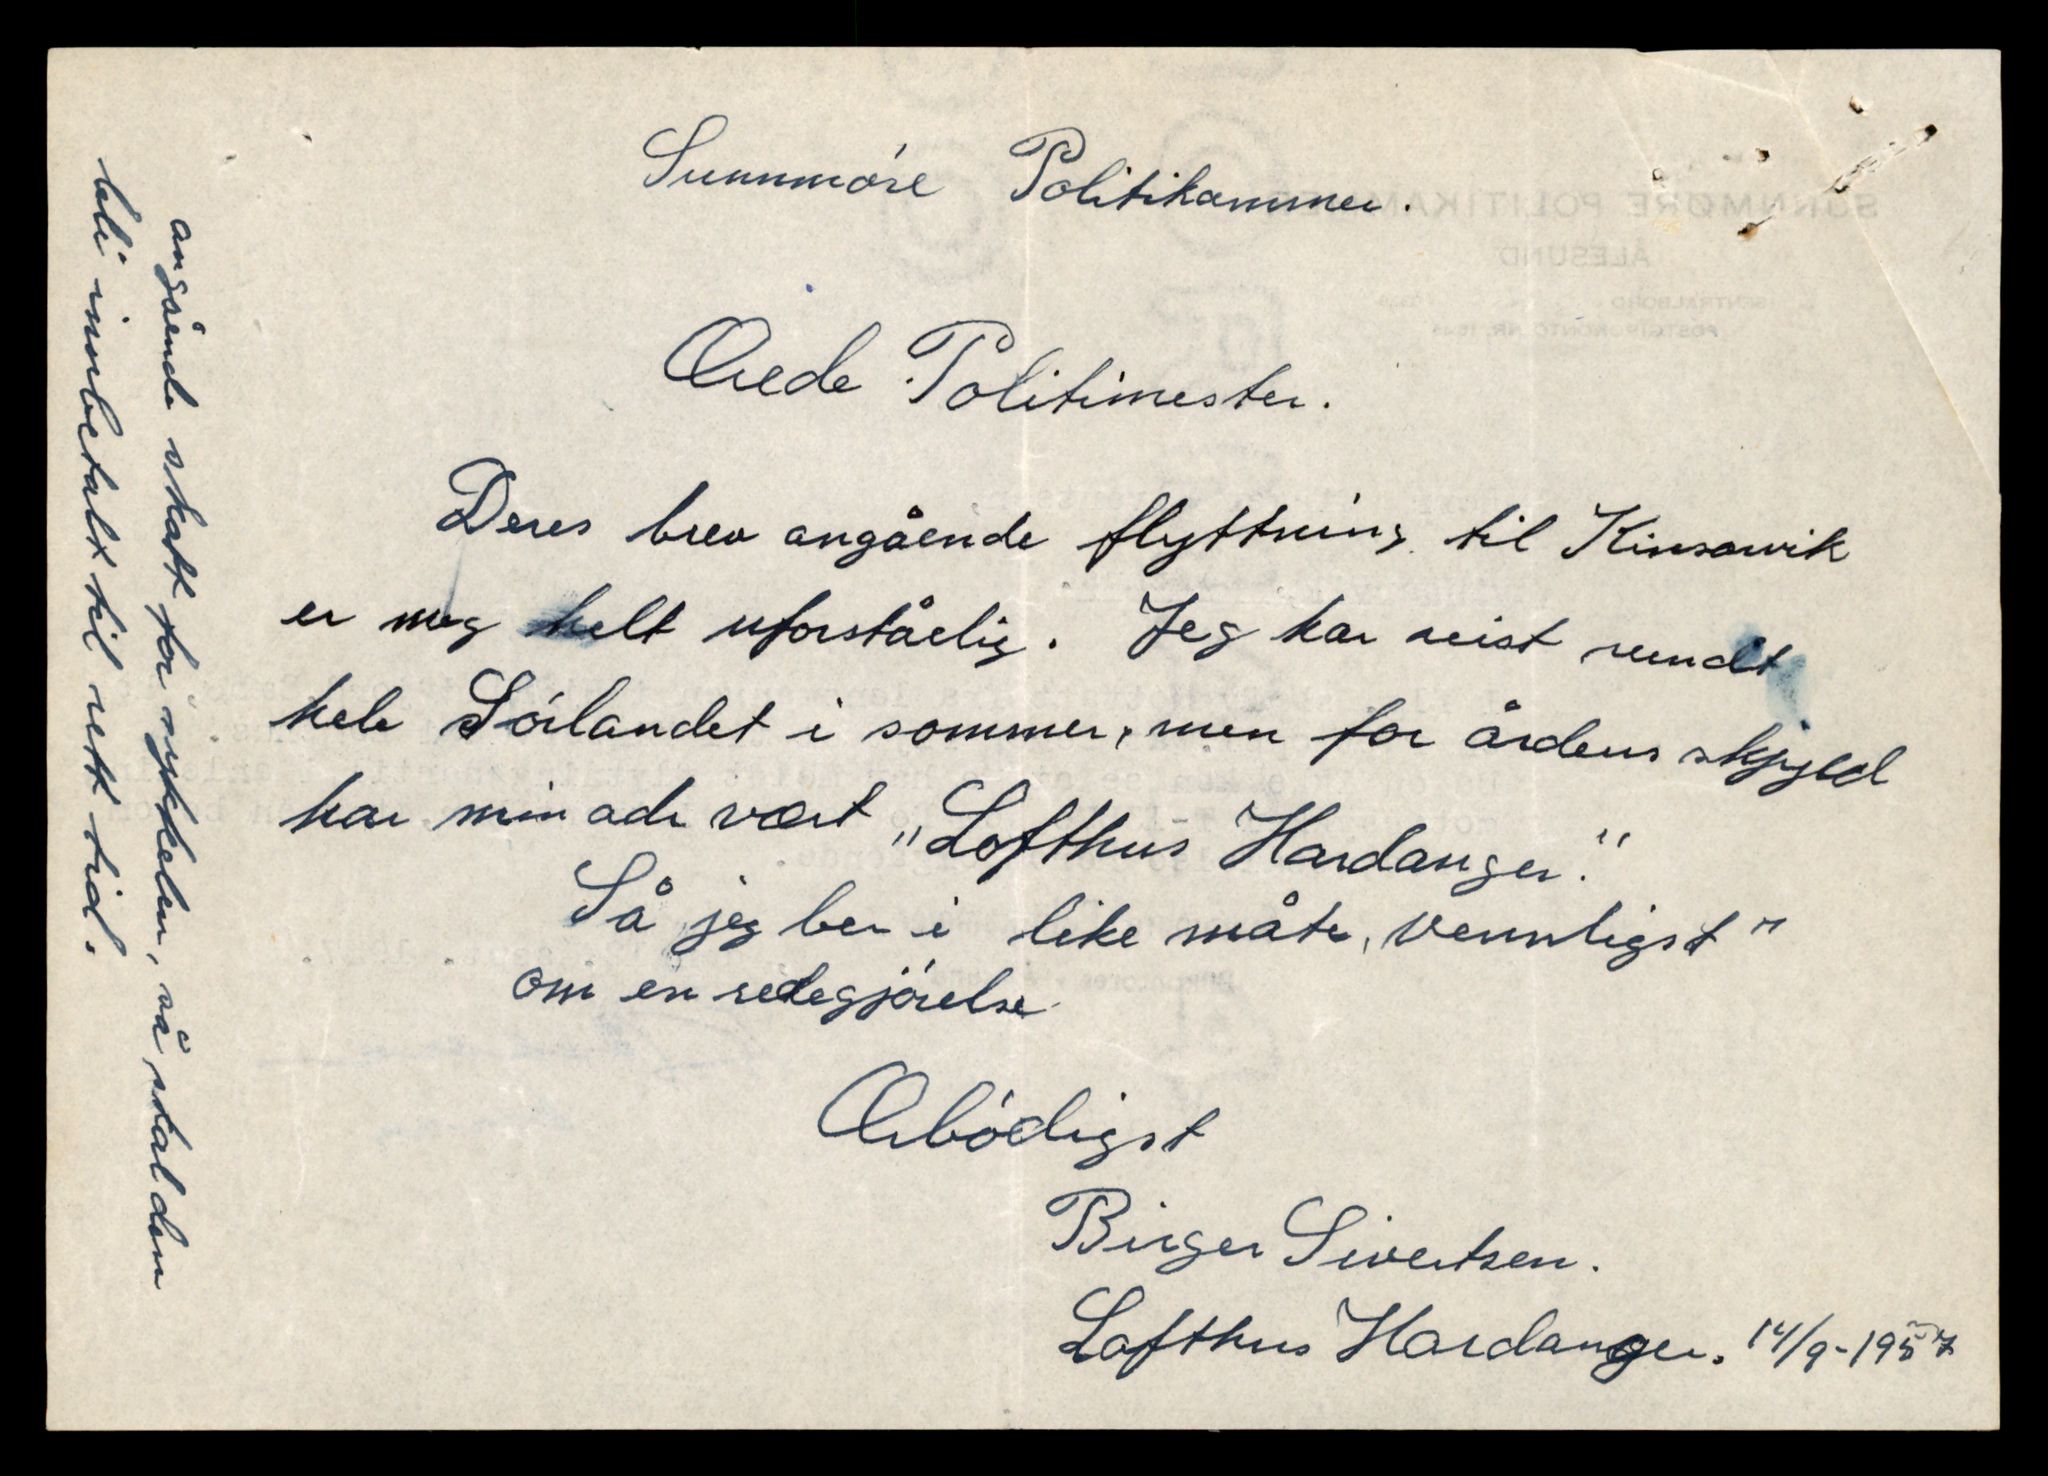 Sunnmöre Politikammer.
Ærede Politimester.
Deres brev angående flyttning til Kinsarvik
er meg helt uforståelig. Jeg har reist rundt
hele Sörlandet i sommer, men for årdens skjyld
har min adr vært "Lofthus Hardanger."
Så jeg ber i like måte, vennligst"
om en redegjörelse
Ærbödigst
Birger Sivertsen.
Lofthus Hardanger. 14/9-1957
angående skatt for sykkelen, så skal den
bli innbetalt til rett tid.
SUNNMØRE POLITIKAMMER
ÅLESUND
SENTRALBORD
POSTGIROKONTO NR.